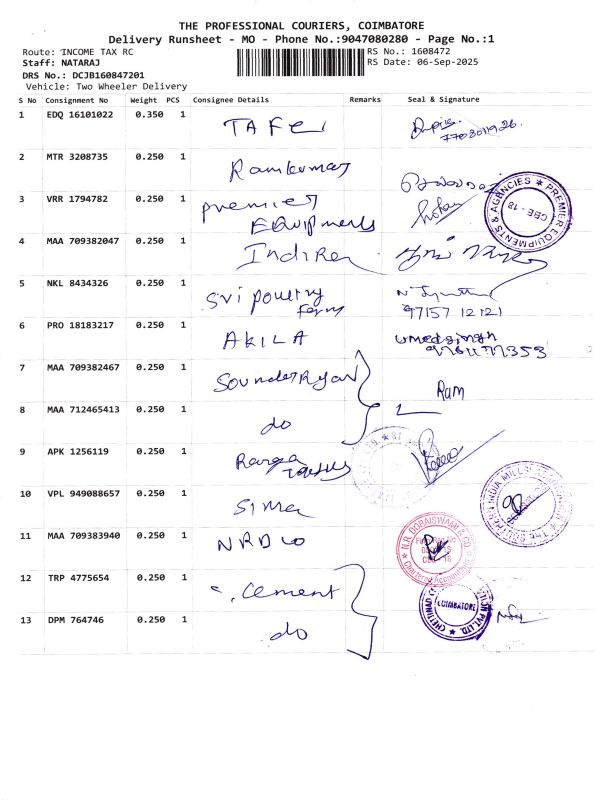 THE PROFESSIONAL COURIERS, COIMBATORE
Delivery Runsheet - MO - Phone No.:9047080280 - Page No.:1
Route: INCOME TAX RC RS No.: 1608472
Staff: NATARAJ RS Date: 06-Sep-2025
DRS No.: DCJB160847201
Vehicle: Two Wheeler Delivery
S No Consignment No Weight PCS Consignee Details Remarks Seal & Signature
1 EDQ 16101022 0.350 1 TAFE
2 MTR 3208735 0.250 1 Ramkumar
3 VRR 1794782 0.250 1 premier
Equipments
PREMIER EQUIPMENTS & AGENCIES ★ CBE - 18
4 MAA 709382047 0.250 1 Indira
5 NKL 8434326 0.250 1 Sri poultry
farm
97157 12121
6 PRO 18183217 0.250 1 AKILA umedsingh
7 MAA 709382467 0.250 1 Ram
8 MAA 712465413 0.250 1 do
9 APK 1256119 0.250 1 Ranga
10 VPL 949088657 0.250 1 Sima
11 MAA 709383940 0.250 1
N.R. DORAISWAMI & CO.
Chartered Accountants
12 TRP 4775654 0.250 1 c. cement
COIMBATORE
13 DPM 764746 0.250 1 do